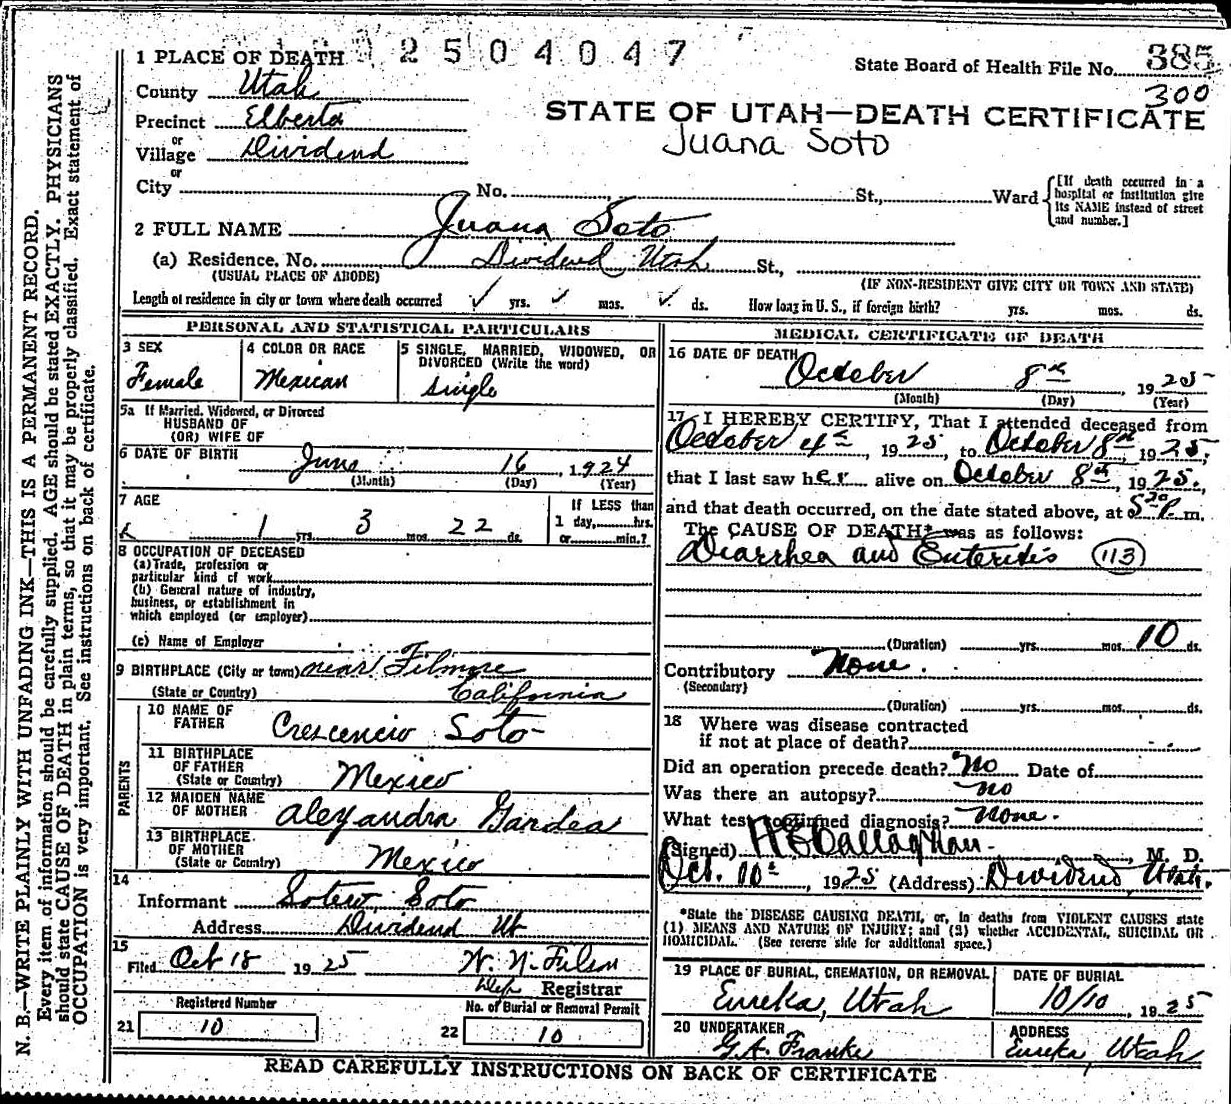 2504047
State Board of Health File No. 385
300
1 PLACE OF DEATH
County Utah
STATE OF UTAH—DEATH CERTIFICATE
Precinct Elberta
Juana Soto
or
Village Dividend
or
City No. St., Ward
[If death occurred in a
hospital or institution give
its NAME instead of street
and number.]
2 FULL NAME Juana Soto
(a) Residence. No. Dividend Utah St.,
(USUAL PLACE OF ABODE) (IF NON-RESIDENT GIVE CITY OR TOWN AND STATE)
Length of residence in city or town where death occurred ✓ yrs. ✓ mos. ✓ ds. How long in U. S., if foreign birth? yrs. mos. ds.
PERSONAL AND STATISTICAL PARTICULARS
3 SEX
Female
4 COLOR OR RACE
Mexican
5 SINGLE, MARRIED, WIDOWED, OR
DIVORCED (Write the word)
single
5a If Married, Widowed, or Divorced
HUSBAND OF
(OR) WIFE OF
6 DATE OF BIRTH June 16, 1924
(Month) (Day) (Year)
7 AGE
1 yrs. 3 mos. 22 ds.
If LESS than
1 day, hrs.
or min.?
8 OCCUPATION OF DECEASED
(a) Trade, profession or
particular kind of work
(b) General nature of industry,
business, or establishment in
which employed (or employer)
(c) Name of Employer
9 BIRTHPLACE (City or town) near Filmore
(State or Country) California
PARENTS
10 NAME OF
FATHER Crescencio Soto
11 BIRTHPLACE
OF FATHER
(State or Country) Mexico
12 MAIDEN NAME
OF MOTHER Alexandra Gandea
13 BIRTHPLACE
OF MOTHER
(State or Country) Mexico
14
Informant Soto
Address Dividend Ut
15
Filed Oct 18 1925 W. N. Filson
Dep Registrar
Registered Number
21 10
No. of Burial or Removal Permit
22 10
MEDICAL CERTIFICATE OF DEATH
16 DATE OF DEATH
October 8th, 1925
(Month) (Day) (Year)
17 I HEREBY CERTIFY, That I attended deceased from
October 4th, 1925, to October 8th, 1925,
that I last saw her alive on October 8th, 1925.
and that death occurred, on the date stated above, at 5 30 P. m.
The CAUSE OF DEATH* was as follows:
Diarrhea and Enteritis 113
(Duration) yrs. mos. 10 ds.
Contributory None.
(Secondary)
(Duration) yrs. mos. ds.
18 Where was disease contracted
if not at place of death?
Did an operation precede death? No Date of
Was there an autopsy? no
What test confirmed diagnosis? None.
(Signed) Callaghan, M. D.
Oct. 10th, 1925 (Address) Dividend, Utah.
*State the DISEASE CAUSING DEATH, or, in deaths from VIOLENT CAUSES state
(1) MEANS AND NATURE OF INJURY; and (2) whether ACCIDENTAL, SUICIDAL OR
HOMICIDAL. (See reverse side for additional space.)
19 PLACE OF BURIAL, CREMATION, OR REMOVAL
Eureka, Utah
DATE OF BURIAL
10/10, 1925
20 UNDERTAKER
G. A. Franke
ADDRESS
Eureka, Utah
READ CAREFULLY INSTRUCTIONS ON BACK OF CERTIFICATE
N. B.—WRITE PLAINLY WITH UNFADING INK—THIS IS A PERMANENT RECORD.
Every item of information should be carefully supplied. AGE should be stated EXACTLY. PHYSICIANS
should state CAUSE OF DEATH in plain terms, so that it may be properly classified. Exact statement of
OCCUPATION is very important. See instructions on back of certificate.